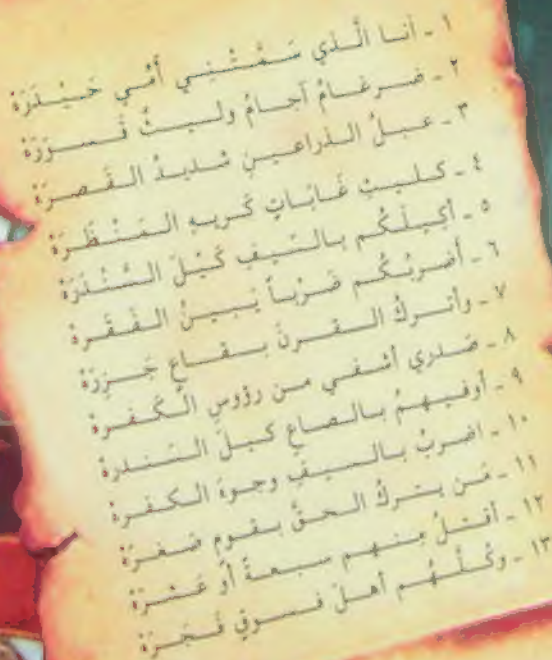 ١ - أنا الَّذي سَمَّتْنِي أُمِّي حَيْدَرَةْ
٢ - ضرغامُ آجامُ وليثُ قَسورَةْ
٣ - عبلُ الذراعينِ شديدُ القَصرَةْ
٤ - كليثِ غَابَاتٍ كَريهِ المَنْظَرَةْ
٥ - أكيلُكُم بالسَيفِ كَيْلَ السَّنْدَرَةْ
٦ - أضربُكُم ضَرْباً يَبينُ الفَقَرةْ
٧ - وأتركُ القرنَ بقاعٍ جَزِرَةْ
٨ - صَدري أشفي من رؤوسِ الكَفرةْ
٩ - أوفيهمُ بالصاعِ كيلَ السَندرةْ
١٠ - اضربُ بالسيفِ وجوهَ الكفرةْ
١١ - مَن يتركُ الحقَّ بقومٍ صَغرَةْ
١٢ - أقتلُ مِنهم سبعةً أوْ عَشرَةْ
١٣ - وكُلُّهُم أهلَ فسوقٍ فَجَرَةْ